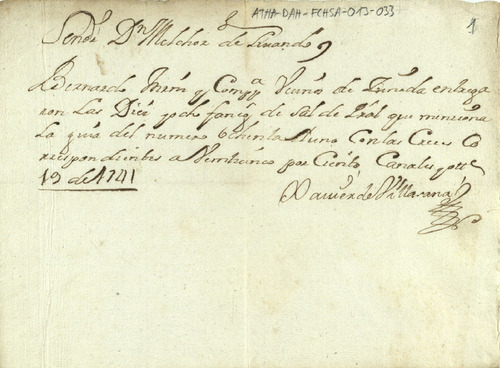 ATHA-DAH-FCHSA-013-033
Señor Dn Melchor de
Bernardo Y Compa Vecinos de Pineda entrega
ron Las Diez y ocho fanegs de Sal de que menciona
La guia del numero Ochenta Y uno Con las Crees Co
rrespondientes a Veinticinco por Ciento Canales
19 de 1741
Xavier de Villarana